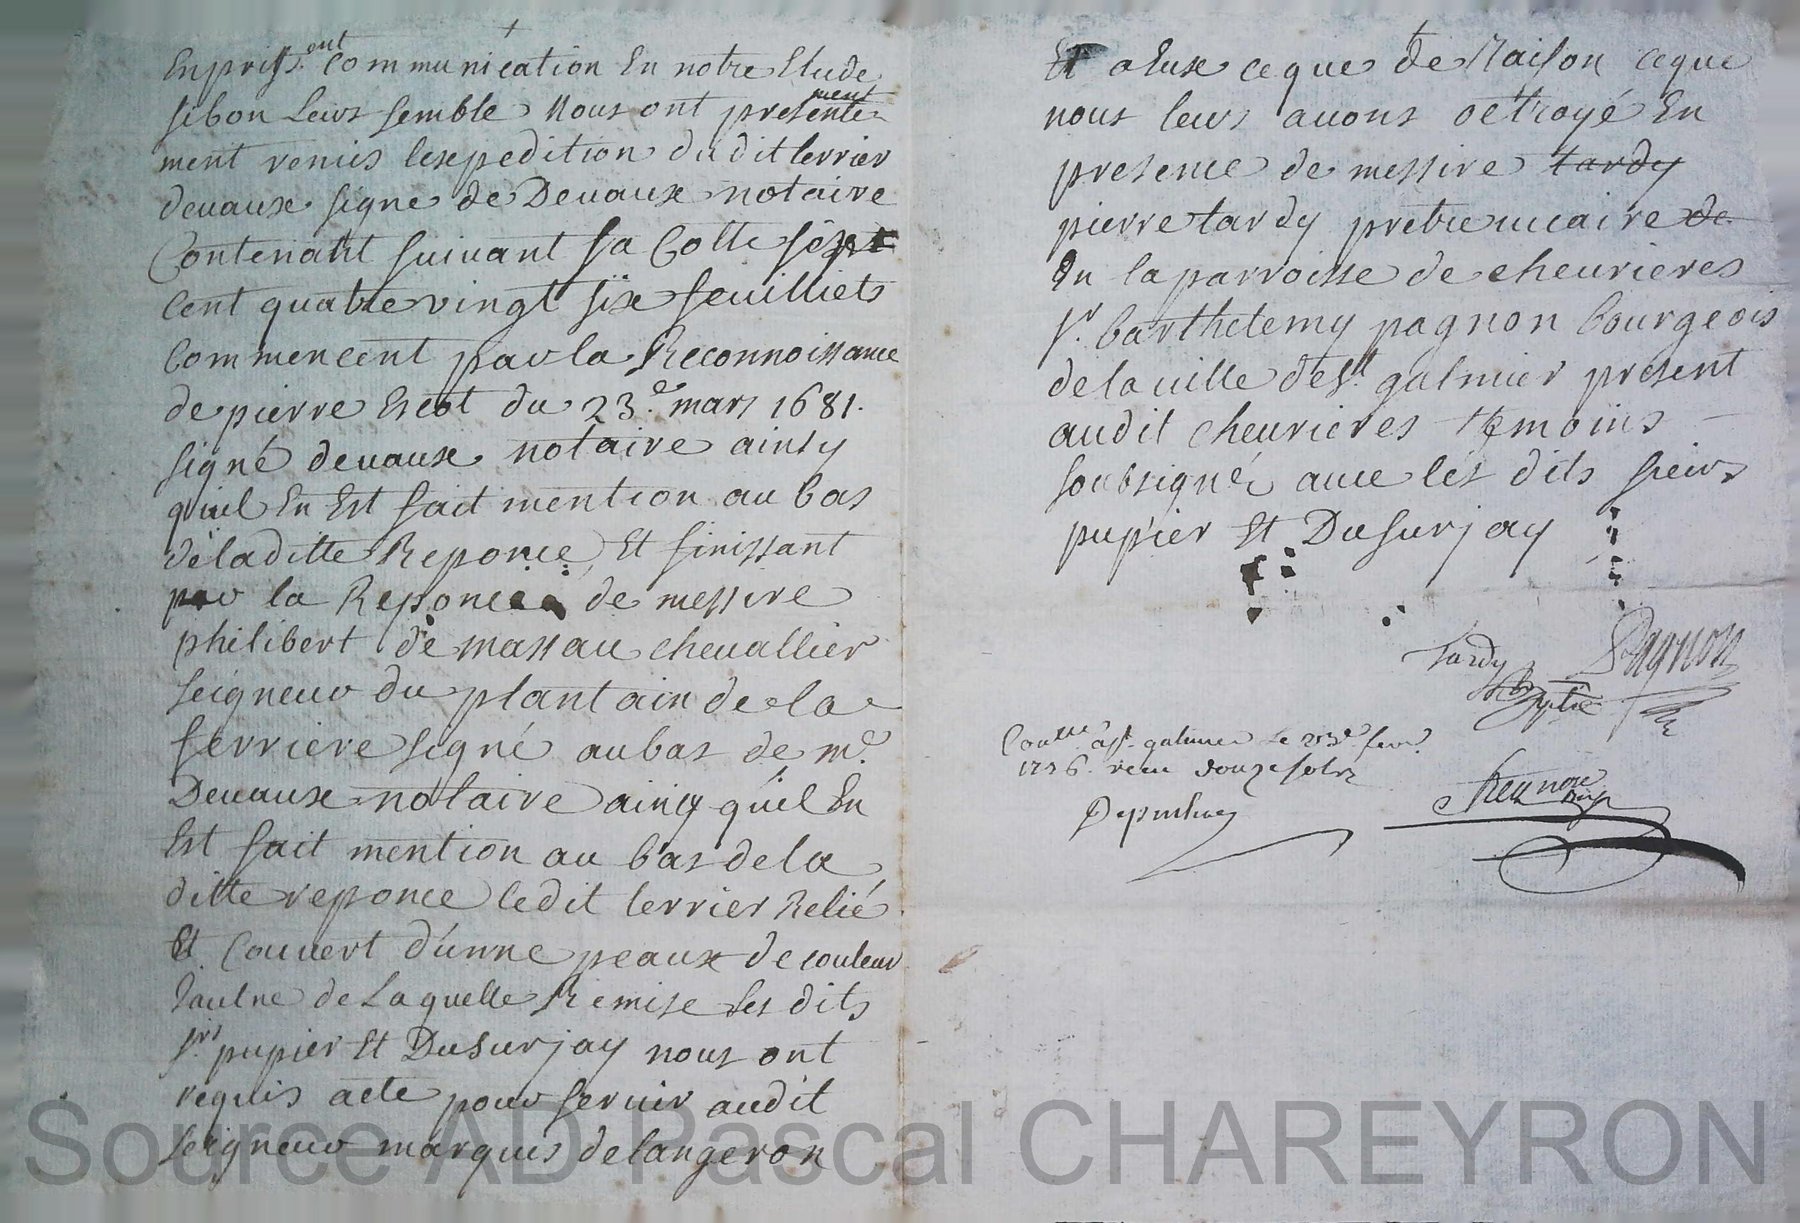 En prisst. ent Communication En notre Etude
si bon Leurs semble Nous ont presente ment
ment remis lexpedition du dit terrier
devaux signe de Devaux notaire
Contenant suivant sa Cotte sept
Cent quatre vingt six feuilliets
Commencent par la Reconnoissance
de pierre Escot du 23.e mars 1681.
signé devaux notaire ainsy
quil En Est fait mention au bas
de laditte Reponce, Et finissant
par la Reponce de messire
philibert de massau chevallier
seigneur du plantain de la
ferriere signé au bas de m.e
Devaux notaire ainsy quil En
Est fait mention au bas de la
ditte reponce ledit terrier Relié
Et Couvert d'unne peaux de couleur
Jaulne de Laquelle Remise les dits
srs. pupier Et Dusurjay nous ont
requis acte pour servir audit
seigneur marquis delangeron
Et a Eux ce que de Raison ce que
nous leurs avons octroyé En
presence de messire tardy
pierre tardy pretre vicaire de
En la parroisse de chevrieres
sr. barthelemy pagnon bourgeois
de la ville de st. galmier present
audit chevrieres temoins
soubsignéz avec les dits sieurs
pupier Et Dusurjay
Tardy Pagnon
Coulle à st. galmier le 23e fevr.
1756. reçu douze sols
Source AD Pascal CHAREYRON